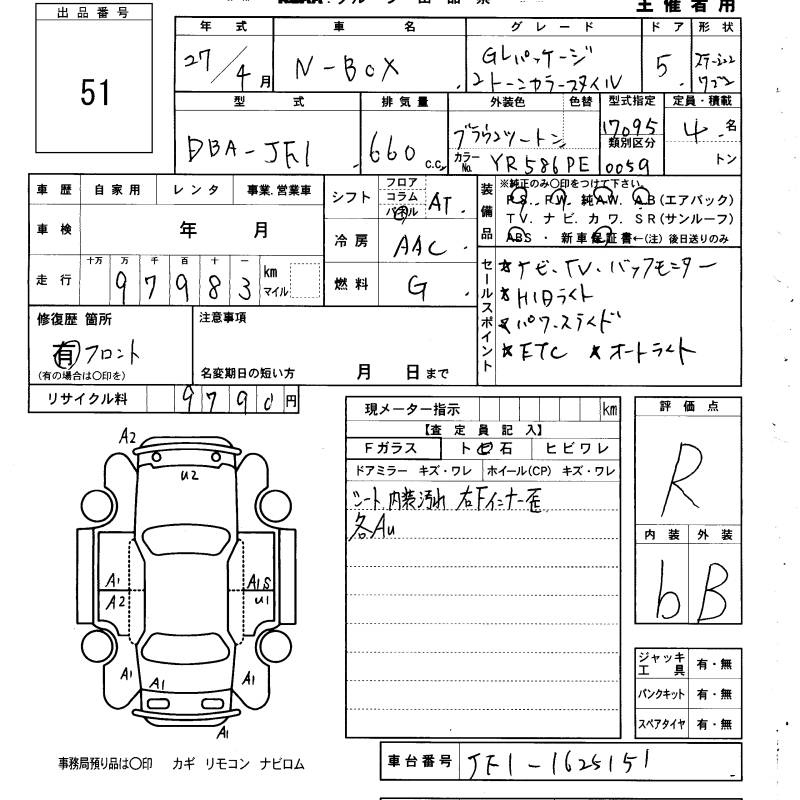 出品番号
51
主催者用
年式 車名 グレード ドア 形状
27/4月 N-BOX GLパッケージ 2トーンカラースタイル 5
型式 排気量 外装色 色替 型式指定 定員・積載
DBA-JF1 660 c.c. ブラウンツートン 17095 4名
カラーNo. YR586PE 類別区分 0059 トン
車歴 自家用 レンタ 事業.営業車
車検 年 月
走行 十万 万 千 百 十 一 km マイル
97983
シフト フロア コラム パネル AT
冷房 AAC
燃料 G
装備品 ※純正のみ○印をつけて下さい
P.S. P.W. 純A.W. A.B(エアバック)
T V. ナ ビ. カ ワ. S R(サンルーフ)
ABS ・ 新車保証書←(注) 後日送りのみ
セールスポイント
★ナビ、TV、バックモニター
★HIDライト
★パワースライド
★ETC ★オートライト
修復歴 箇所
有 フロント
(有の場合は○印を)
注意事項
名変期日の短い方 月 日まで
リサイクル料 9790円
現メーター指示 km
【査定員記入】
Fガラス ト ビ 石 ヒビワレ
ドアミラー キズ・ワレ ホイール(CP) キズ・ワレ
シート、内装汚れ 右Fインナー歪
各AU
評価点
R
内装 外装
b B
ジャッキ工具 有・無
パンクキット 有・無
スペアタイヤ 有・無
A2
U2
A1 A1S
A2 U1
A1 A1 A1
A1
事務局預り品は○印 カギ リモコン ナビロム
車台番号 JF1-1625151